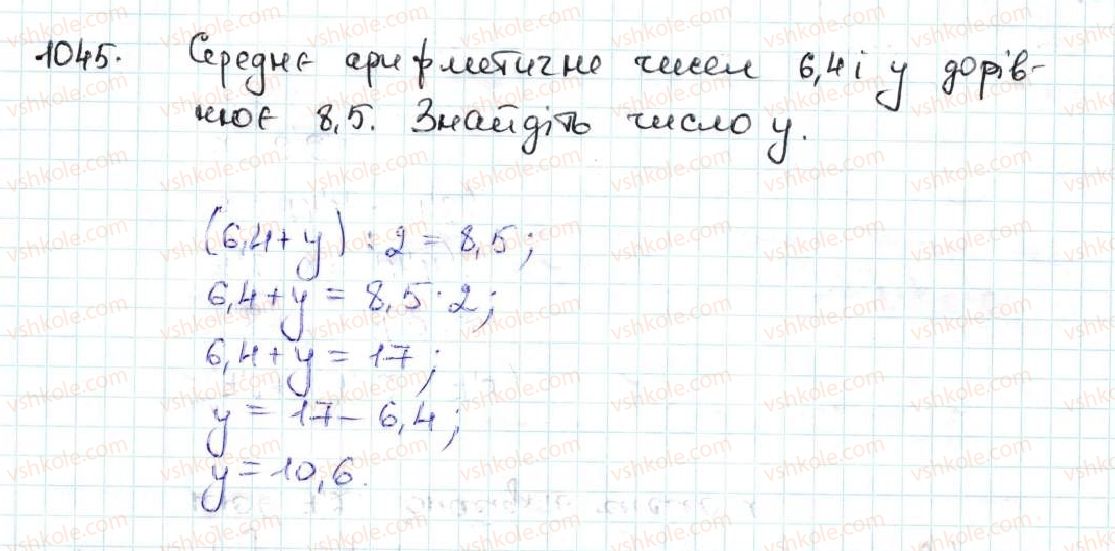 1045. Середнє арифметичне чисел 6,4 і y дорів-
нює 8,5. Знайдіть число y.
(6,4+y) : 2 = 8,5;
6,4+y = 8,5·2;
6,4+y = 17;
y = 17-6,4;
y = 10,6.